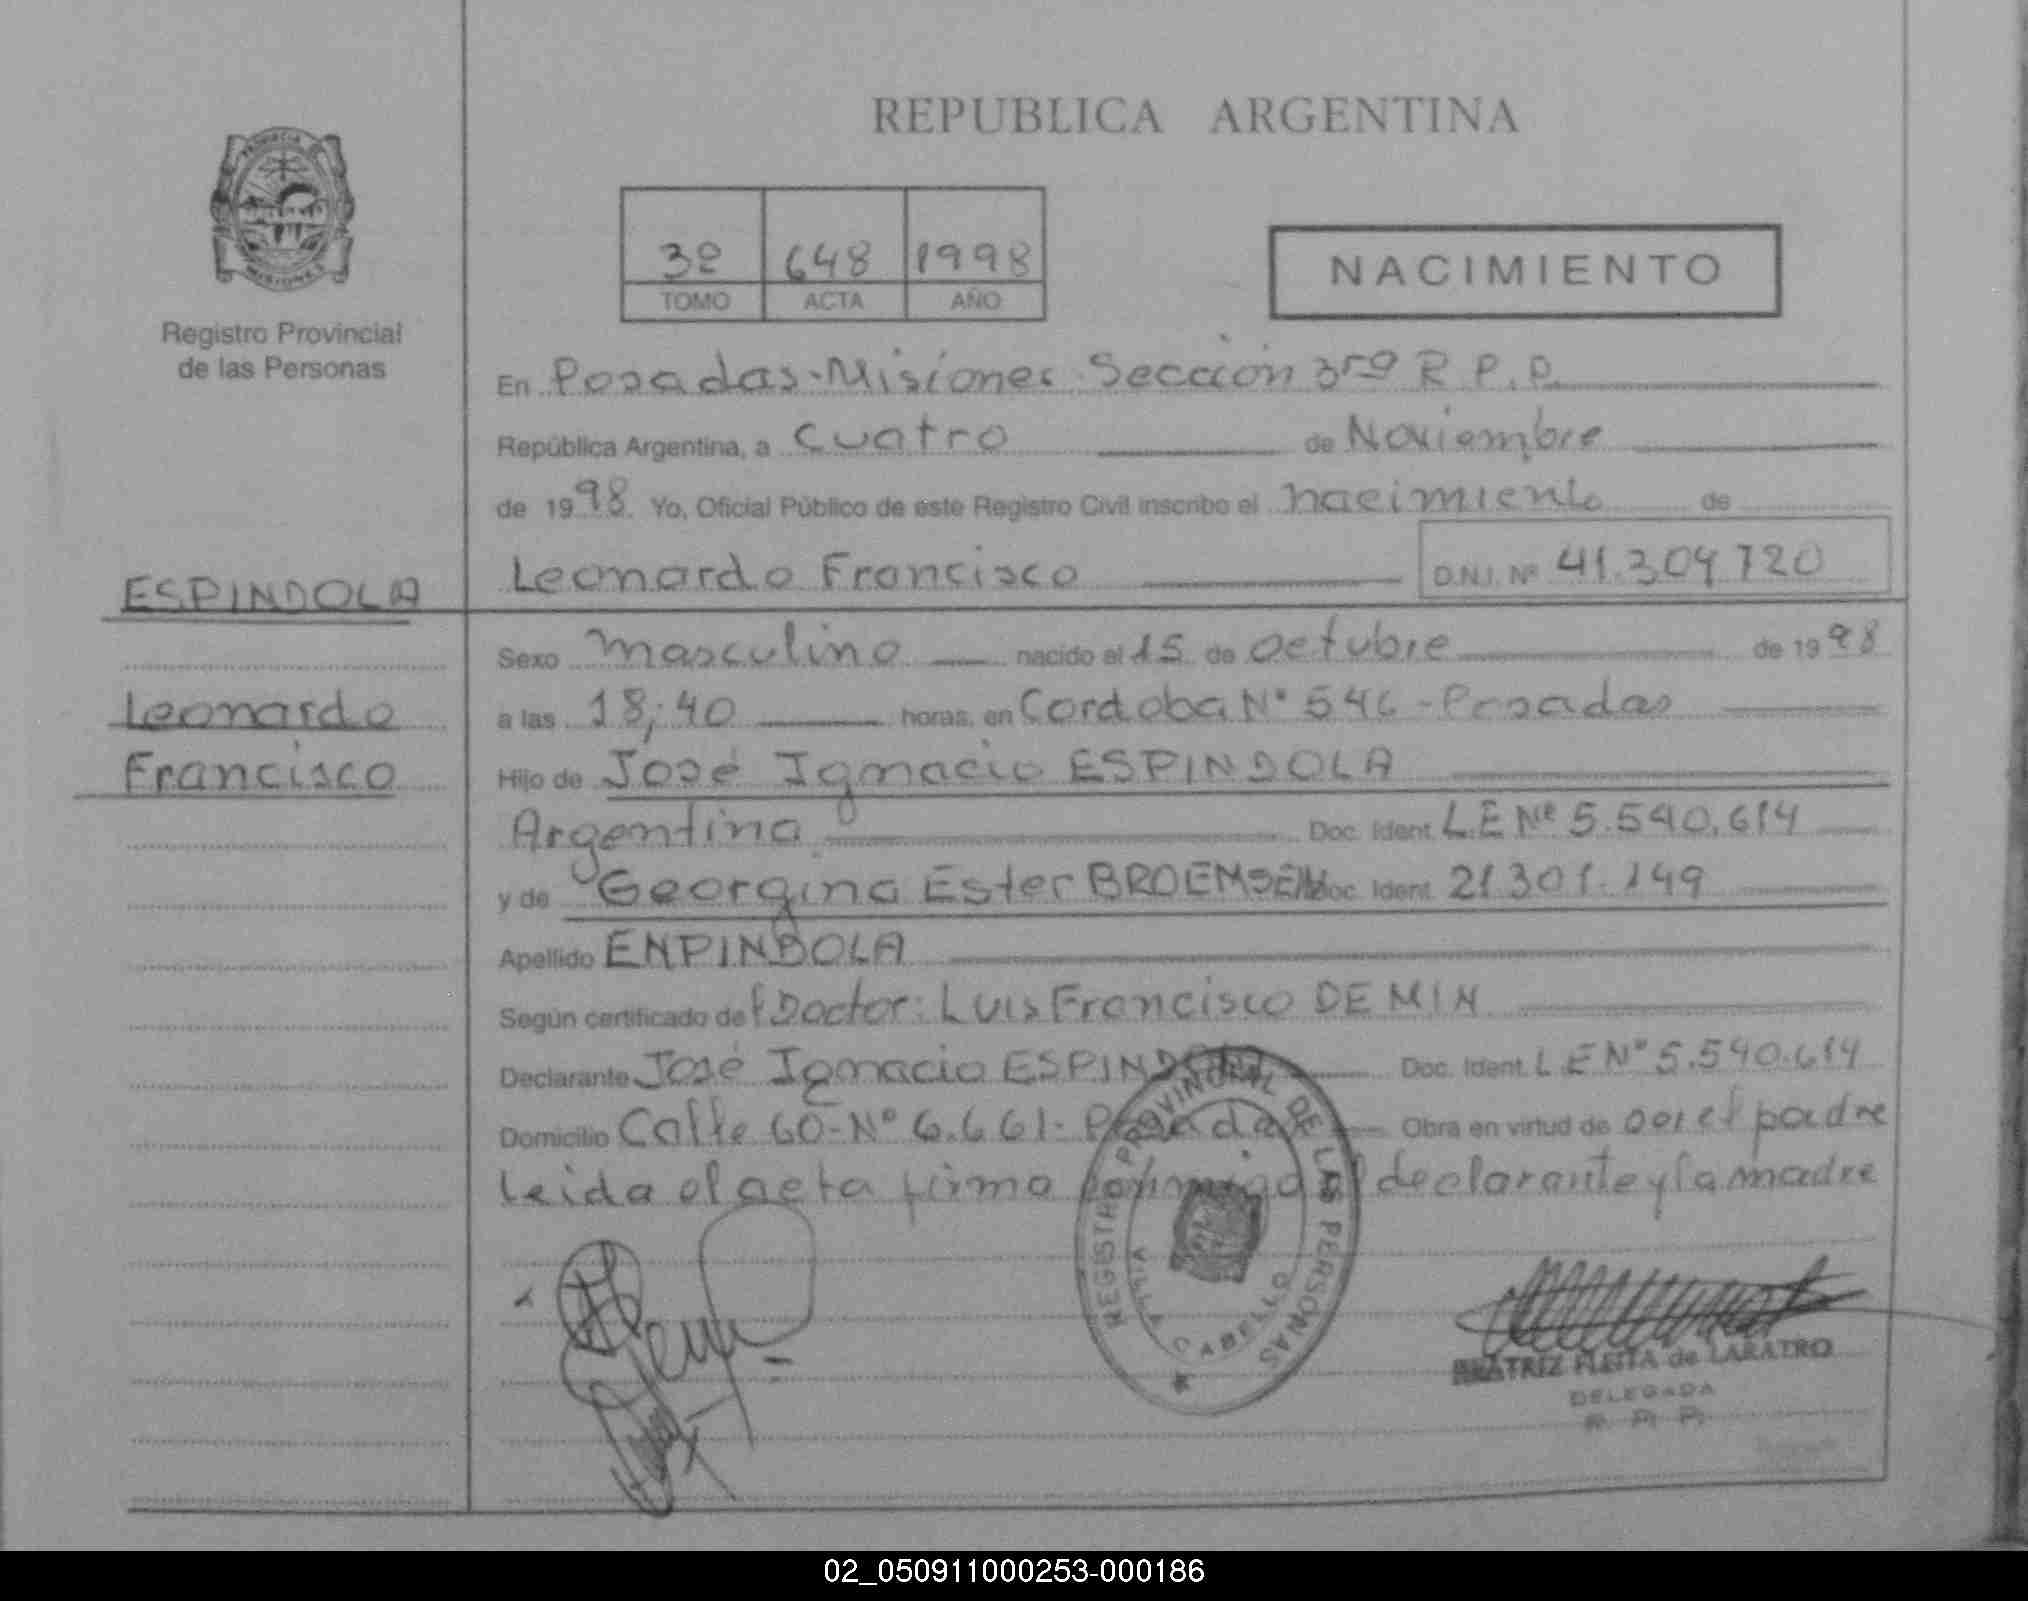 REPUBLICA ARGENTINA
PROVINCIA
MISIONES
Registro Provincial
de las Personas
3º 648 1998
TOMO ACTA AÑO
NACIMIENTO
En Posadas-Misiones Sección 3ra R.P.P.
República Argentina, a cuatro de Noviembre
de 1998. Yo, Oficial Público de este Registro Civil inscribo el nacimiento de
Leonardo Francisco D.N.I. Nº 41.304.720
ESPINDOLA
Leonardo
Francisco
Sexo masculino nacido el 15 de octubre de 1998
a las 18:40 horas, en Cordoba Nº 546 - Posadas
Hijo de José Ignacio ESPINDOLA
Argentina Doc. Ident. L.E Nº 5.540.614
y de Georgina Ester BROEMSEN Doc. Ident. 21.301.149
Apellido ENPINDOLA
Según certificado del Doctor: Luis Francisco DEMIN
Declarante José Ignacio ESPINDOLA Doc. Ident. L E Nº 5.540.614
Domicilio Calle 60-Nº 6.661- Posadas Obra en virtud de ser el padre
Leida el acta firma conmigo el declarante y la madre
REGISTRO PROVINCIAL DE LAS PERSONAS
VILLA CABELLO
BEATRIZ FLEITA de LARATRO
DELEGADA
R. P. P.
02_050911000253-000186